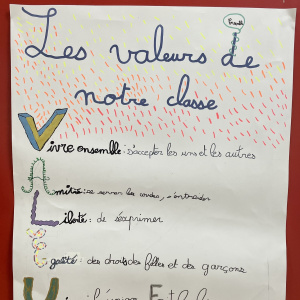 Les valeurs de
notre classe
Vivre ensemble : s'accepter les uns et les autres
Amitié : se serrer les coudes, s'entraider
Liberté : de s'exprimer
Egalité : des droits des filles et des garçons